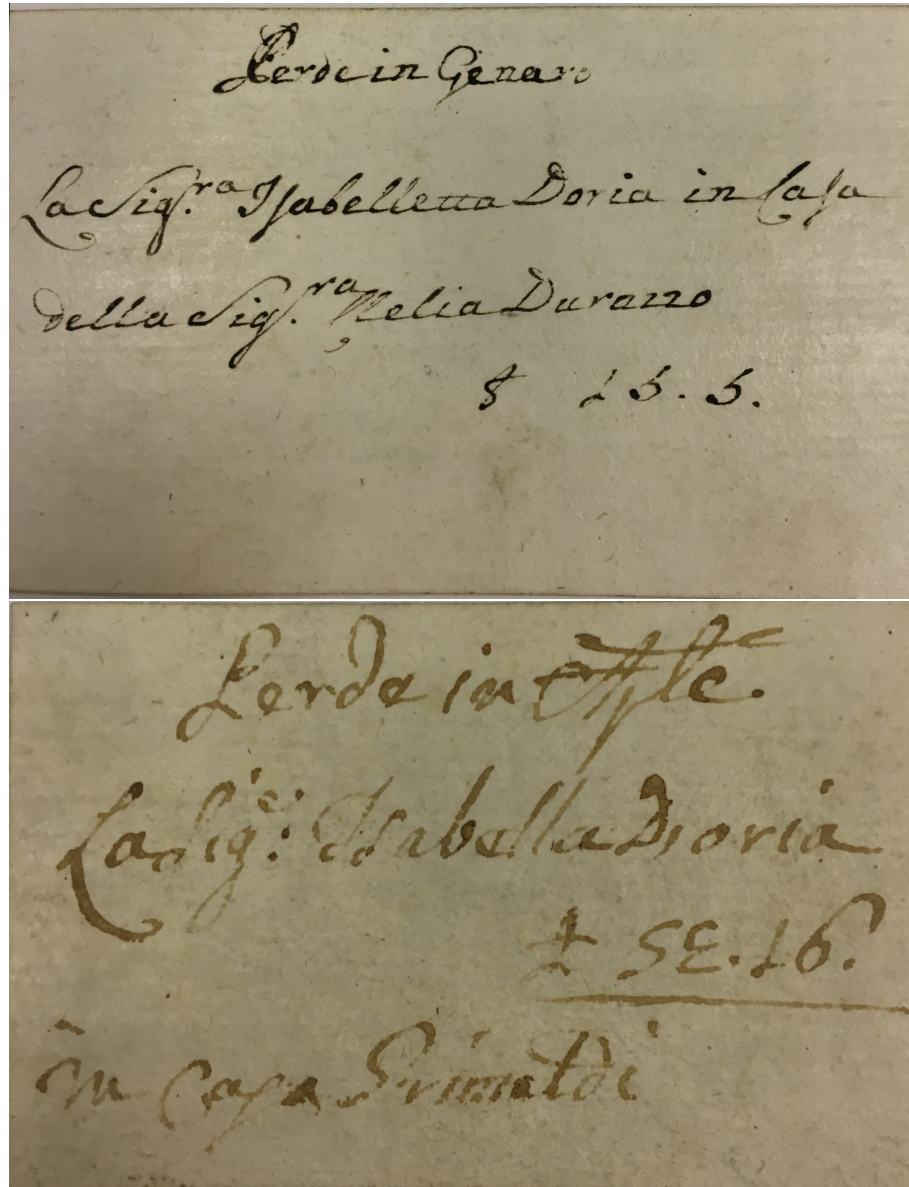 Perde in Genaro
La Sig.ra Isabelletta Doria in Casa
della Sig.ra Clelia Durazzo
15. 5.
Perde in
La Sig.a Isabella Doria
£ 52.16.
in Casa Grimaldi